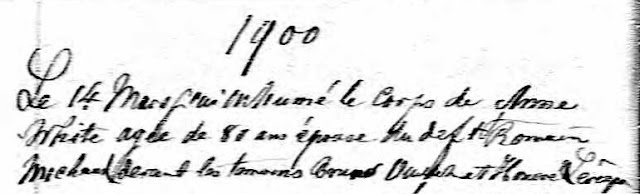 1900
Le 14 Mars j'ai inhumé le corps de Anne
White agée de 80 ans épouse du deft Romain
Michaud devant les temoins Bruno et Honoré